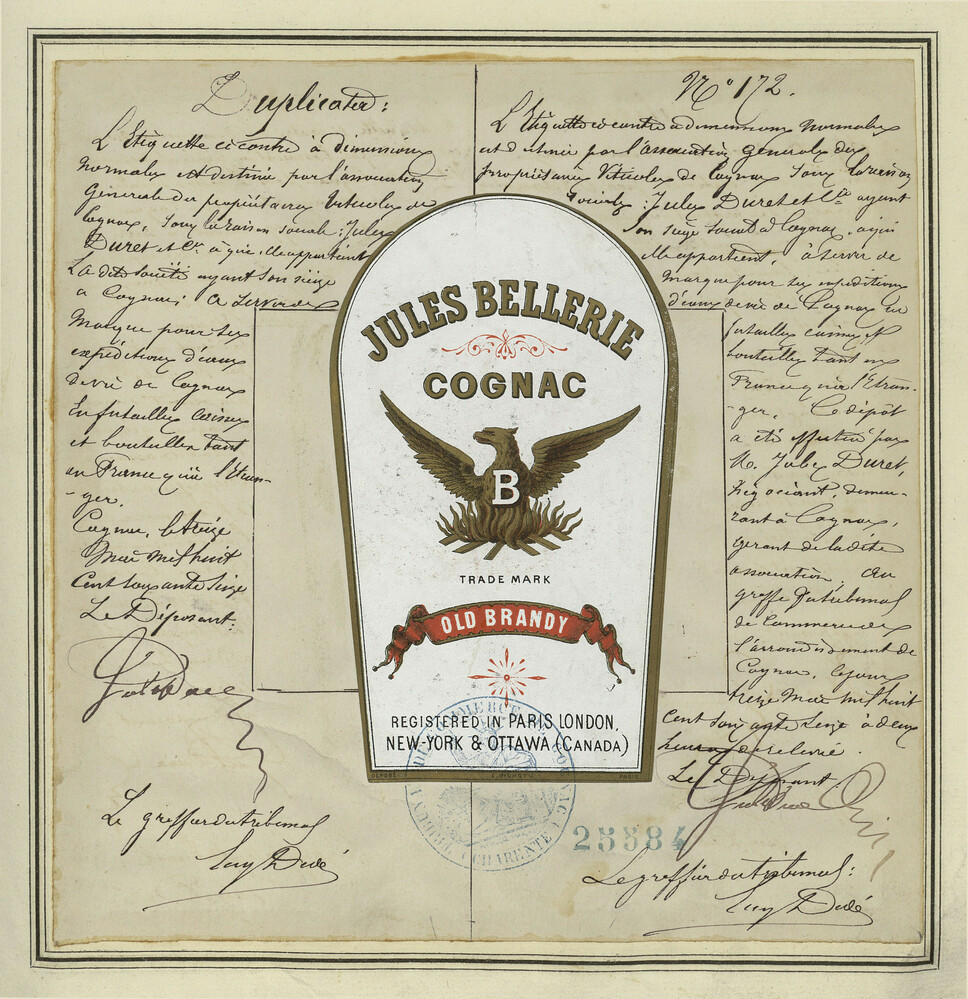 Duplicata:
L'Etiquette ci contre à dimensions
normales est destinée par l'association
Générale des propriétaires Viticoles de
Cognac, sous la raison sociale: Jules
Duret et Cie à qui elle appartient
La dite société ayant son siège
a Cognac; a servir de
Marque pour ses
expéditions d'eaux
de vie de Cognac
En futailles caisses
et bouteilles tant
en France qu'à l'étran-
-ger.
Cognac, le treize
Mai mil huit
Cent soixante seize
Le Déposant:
Le greffier du tribunal
N° 172.
L'Etiquette ci contre a dimensions normales
est destinée par l'association générale des
propriétaires Viticoles de Cognac sous la raison
sociale: Jules Duret et Cie ayant
son siège social à Cognac, a qui
elle appartient, à servir de
Marque pour ses expéditions
d'eaux de vie de Cognac en
futailles caisses et
bouteilles tant en
France qu'à l'Etran-
-ger. Le dépôt
a été effectué par
M. Jules Duret,
Négociant, demeu-
rant à Cognac,
gérant de la dite
association, au
greffe du tribunal
de Commerce de
l'arrondissement de
Cognac, le jour
treize Mai mil huit
Cent soixante seize à deux
heures de relevée.
Le Déposant
25584
Le greffier du tribunal:
JULES BELLERIE
COGNAC
B
TRADE MARK
OLD BRANDY
REGISTERED IN PARIS, LONDON,
NEW-YORK & OTTAWA (CANADA)
DÉPOSÉ
PARIS